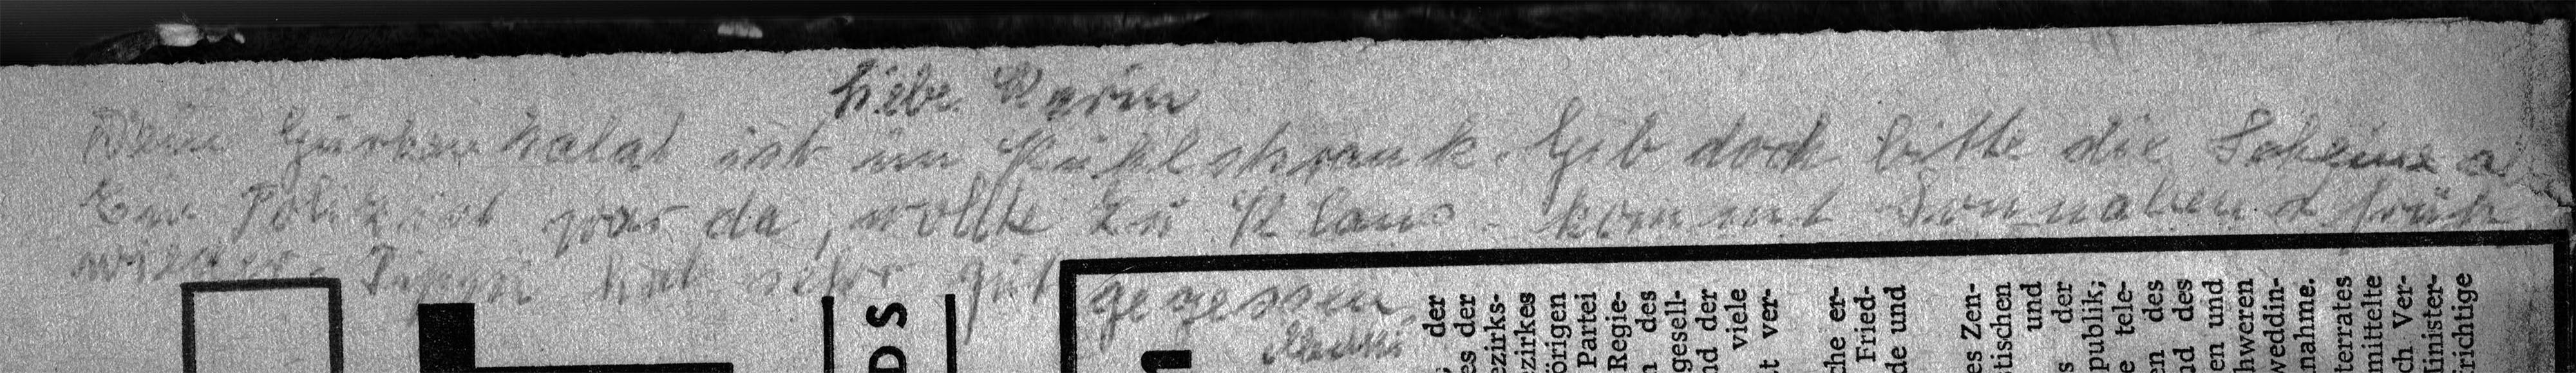 Liebe Karin
Dein Gurkensalat ist im Kühlschrank. Gib doch bitte die Scheine
Ein Polizist war da, wollte zu Klaus. kommt Sonnabend früh
wieder. Pippi hat sehr gut gegessen.
DS
der
es der
ezirks-
ezirkes
örigen
Partei
Regie-
n des
gesell-
nd der
viele
t ver-
che er-
Fried-
de und
es Zen-
tischen
und
s der
publik;
e tele-
en des
nd des
en und
hweren
weddin-
nahme.
terrates
mittelte
ch Ver-
inister-
richtige